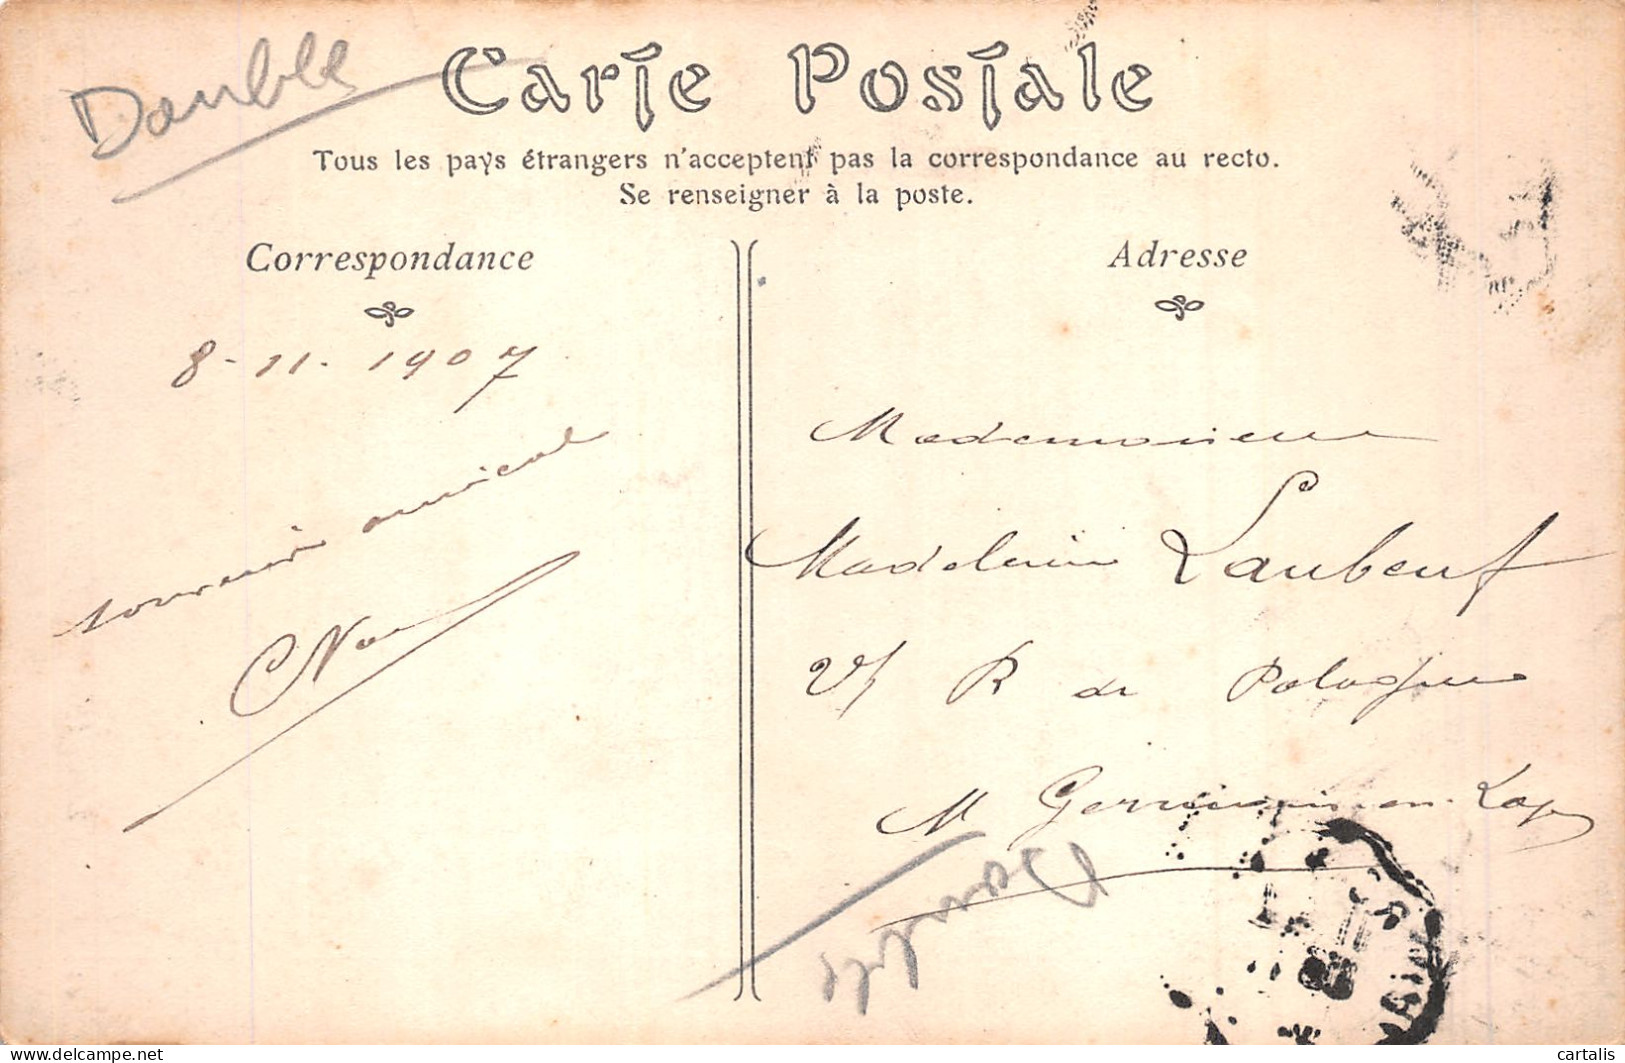 Double
Carte Postale
Tous les pays étrangers n'acceptent pas la correspondance au recto.
Se renseigner à la poste.
Correspondance
8-11-1907
souvenir amical
Adresse
Mademoiselle
Madeleine Laubeuf
R de Pologne
Germain en Lay
Double
cartalis